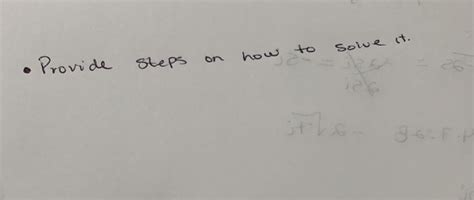 • Provide steps on how to solve it.